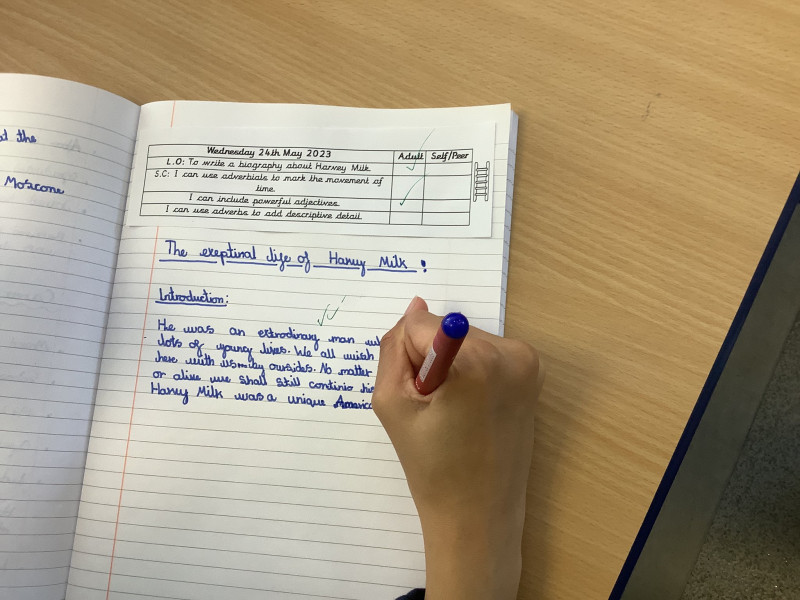 d the
Moscone
Wednesday 24th May 2023
Adult
Self/Peer
L.O: To write a biography about Harvey Milk.
S.C: I can use adverbials to mark the movement of
time.
I can include powerful adjectives.
I can use adverbs to add descriptive detail.
The exeptinal life of Harvey Milk!
Introduction:
He was an extrodinary man
lots of young lives. We all wish
here with us ousides. No matter
or alive we shall still continio his
Harvey Milk was a unique America